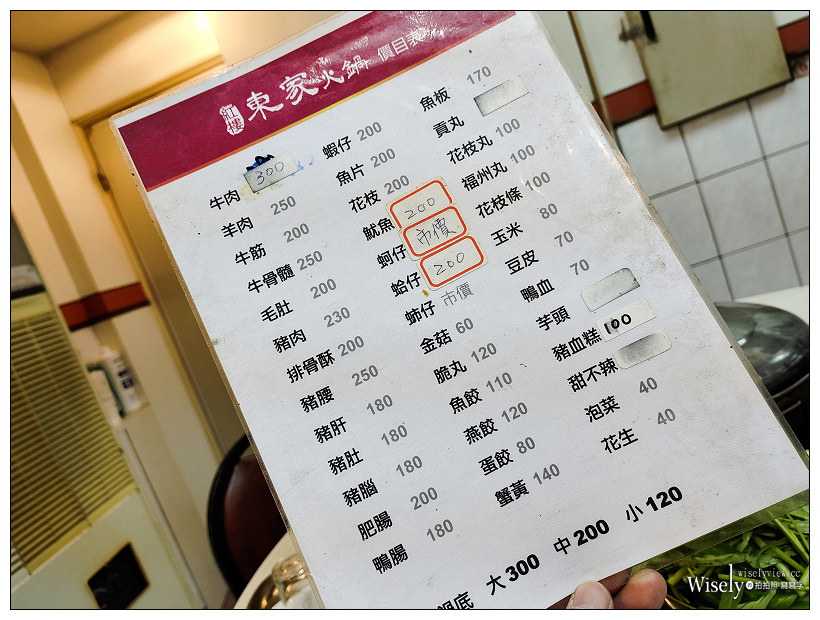 紅樓 東家火鍋 價目表
牛肉 300
羊肉 250
牛筋 200
牛骨髓 250
毛肚 200
豬肉 230
排骨酥 200
豬腰 250
豬肝 180
豬肚 180
豬腦 180
肥腸 200
鴨腸 180
蝦仔 200
魚片 200
花枝 200
魷魚 200
蚵仔 市價
蛤仔 200
蚋仔 市價
金菇 60
脆丸 120
魚餃 110
燕餃 120
蛋餃 80
蟹黃 140
魚板 170
貢丸
花枝丸 100
福州丸 100
花枝條 100
玉米 80
豆皮 70
鴨血 70
芋頭
豬血糕 100
甜不辣
泡菜 40
花生 40
鍋底 大300 中200 小120
wiselyview.cc
Wisely 的 拍拍照 寫寫字